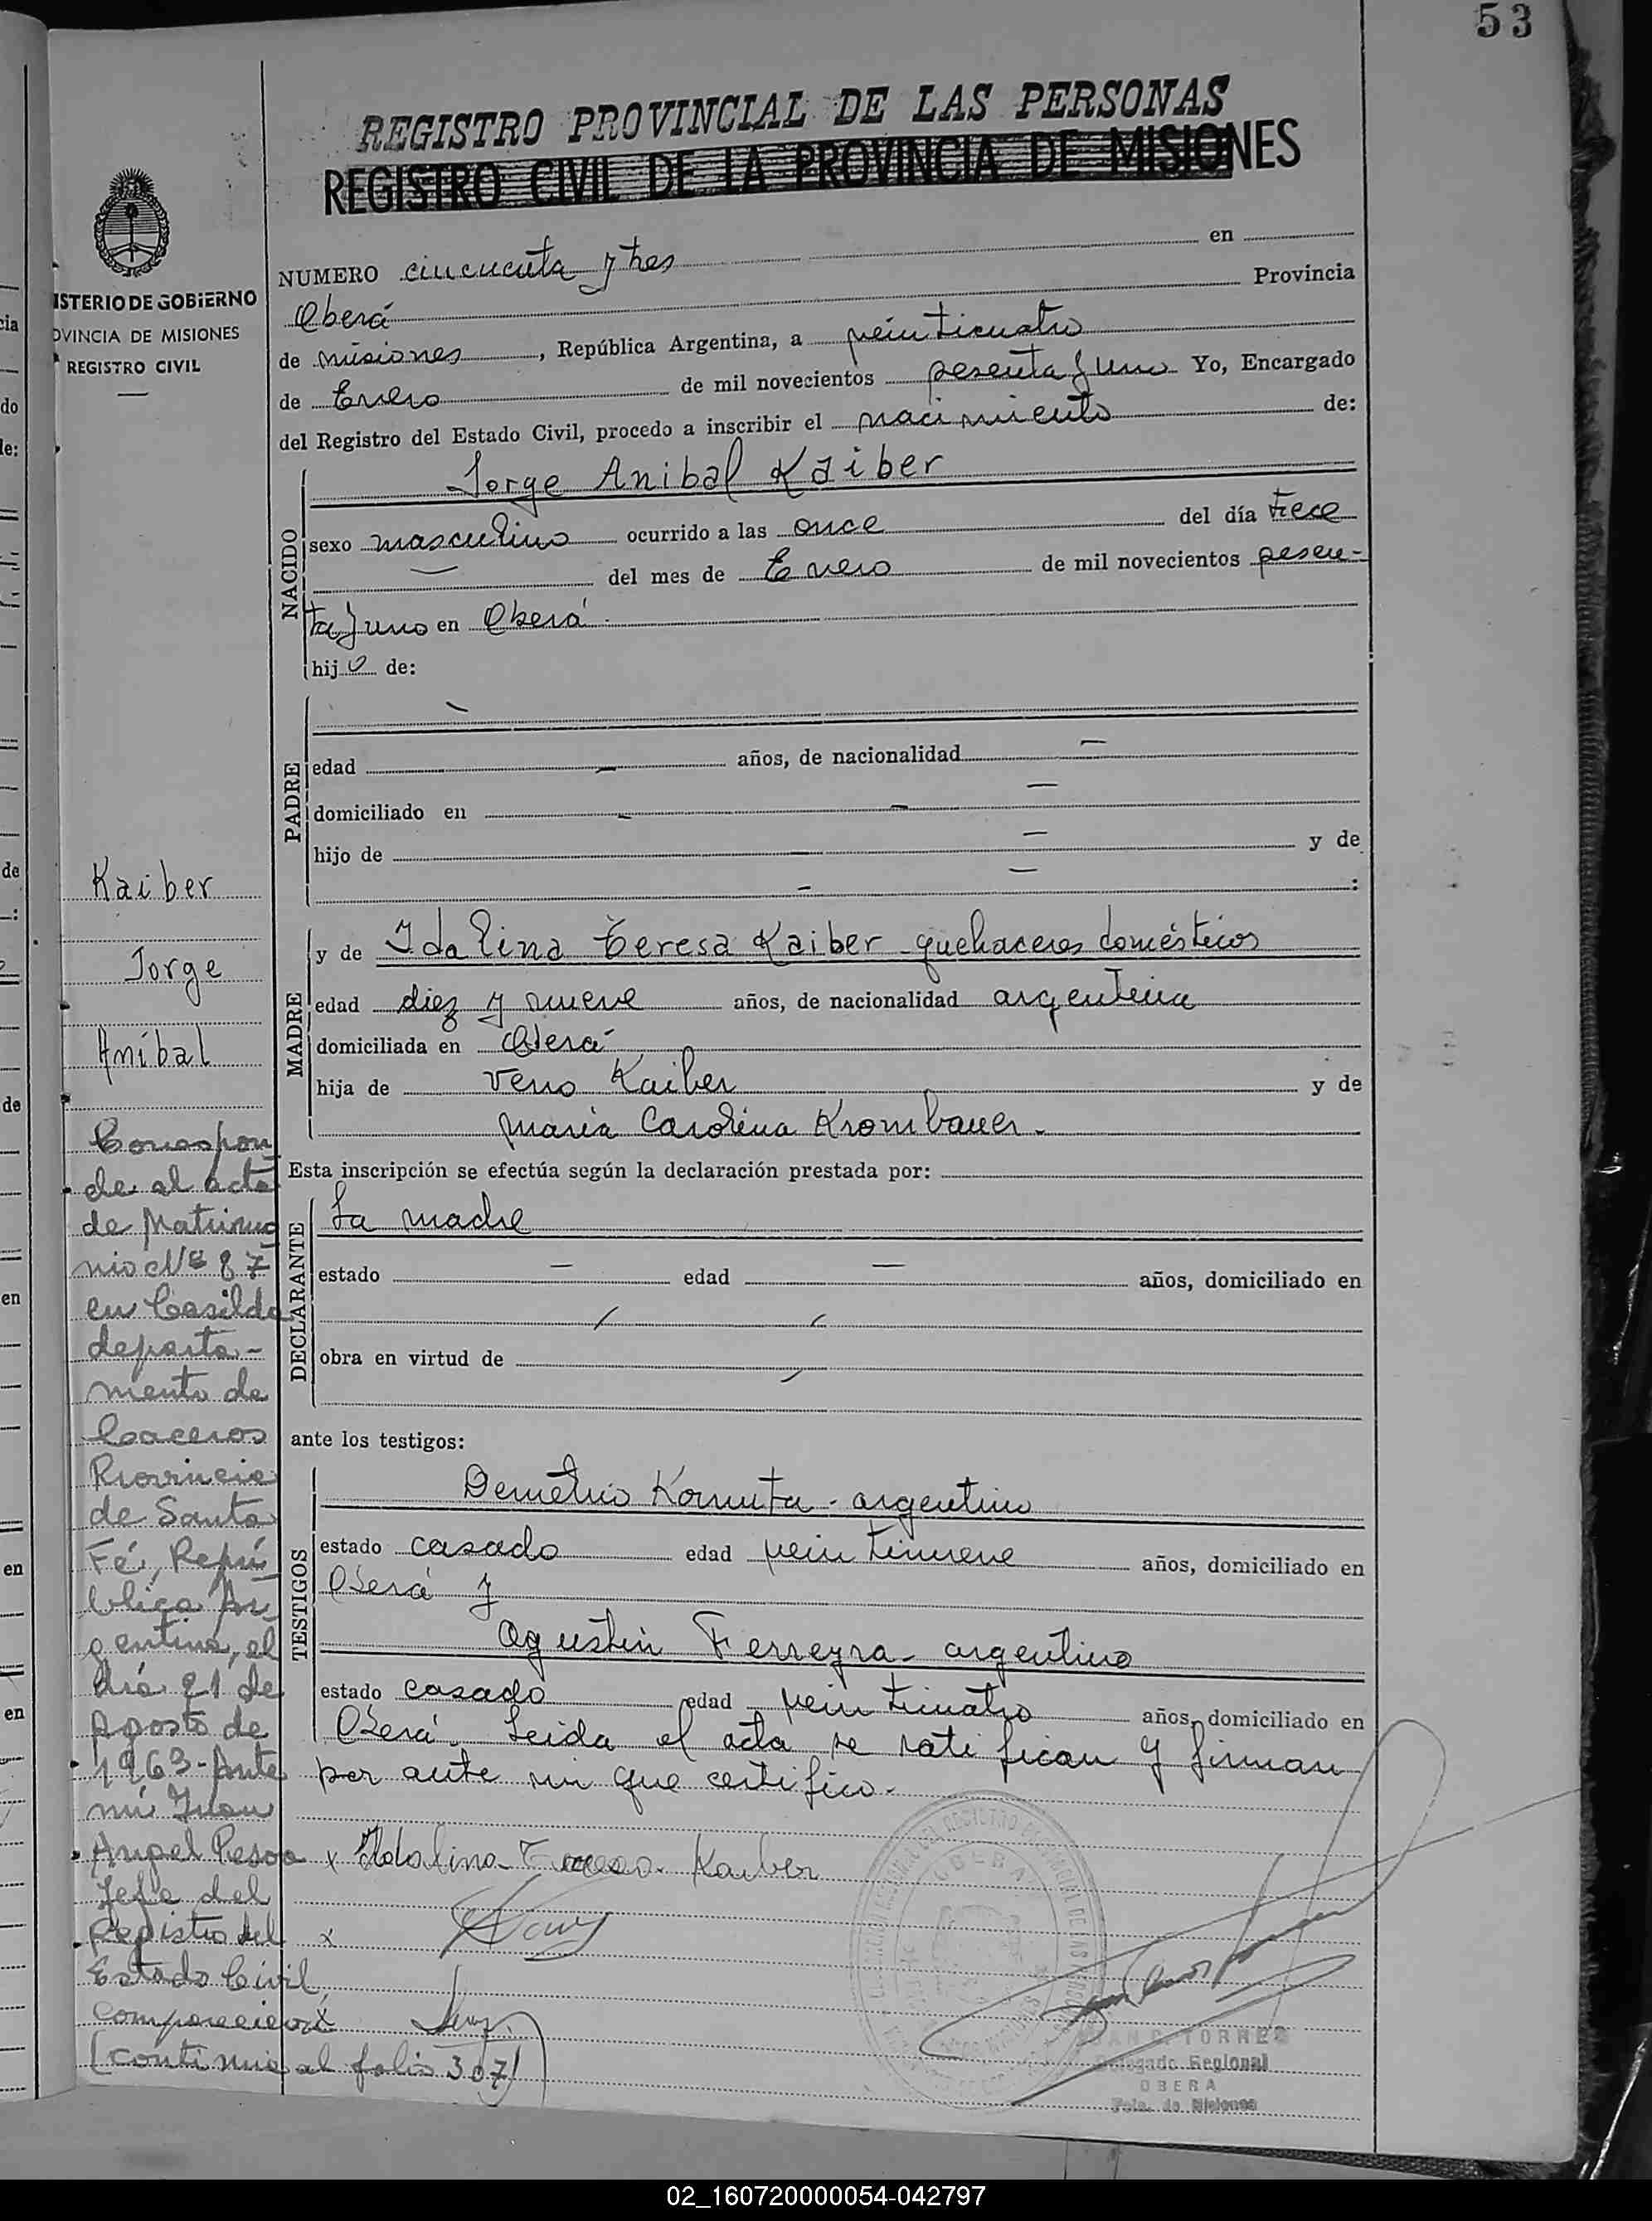 53
REGISTRO PROVINCIAL DE LAS PERSONAS
REGISTRO CIVIL DE LA PROVINCIA DE MISIONES
ISTERIO DE GOBIERNO
OVINCIA DE MISIONES
REGISTRO CIVIL
NUMERO cincuenta y tres en
Oberá Provincia
de misiones, República Argentina, a veinticuatro
de Enero de mil novecientos sesenta y uno Yo, Encargado
del Registro del Estado Civil, procedo a inscribir el nacimiento de:
NACIDO
Jorge Anibal Kaiber
sexo masculino ocurrido a las once del día trece
— del mes de Enero de mil novecientos sesen-
ta y uno en Oberá.
hijo de:
PADRE
—
edad — años, de nacionalidad —
domiciliado en — — —
hijo de — — y de
— — :
MADRE
y de Idalina Teresa Kaiber - quehaceres domésticos
edad diez y nueve años, de nacionalidad argentina
domiciliada en Oberá
hija de Veno Kaiber y de
María Carolina Krombauer.
Esta inscripción se efectúa según la declaración prestada por:
DECLARANTE
La madre
estado — edad — años, domiciliado en
obra en virtud de
ante los testigos:
TESTIGOS
Demetrio Kornuta - argentino
estado casado edad veintinueve años, domiciliado en
Oberá y
Agustín Ferreyra - argentino
estado casado edad años, domiciliado en
Oberá. Leida el acta se ratifican y firman
por ante mi que certifico.
x Idalina Teresa Kaiber
x
x
Kaiber
Jorge
Aníbal
Correspon
de al acta
de Matrimo
nio Nº 87
en Casilda
departa-
mento de
Caceros
Provincia
de Santa
Fé, Repú
blica Ar
gentina, el
día 21 de
Agosto de
1963 - Ante
mí Juan
Angel Pesoa
Jefe del
Registro del
Estado Civil,
(continua al folio 307)
OBERA
TORRES
Delegado Regional
OBERA
Pcia. de Misiones
02_160720000054-042797